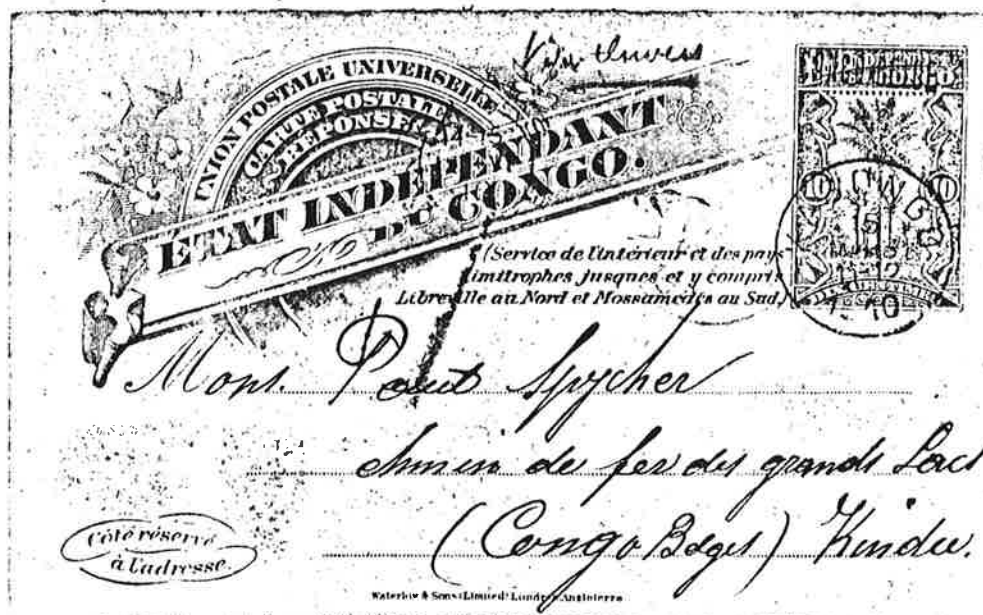 Via Anvers
UNION POSTALE UNIVERSELLE
CARTE POSTALE
RÉPONSE
ÉTAT INDÉPENDANT
DU CONGO.
(Service de l'intérieur et des pays
limitrophes jusques et y compris
Libreville au Nord et Mossamédès au Sud.)
10 10
5
10
Mons. Paul Spycher
chemin de fer des grands Lacs
(Congo Belge) Kindu.
Côté réservé
à l'adresse.
Waterlow & Sons Limited Londres Angleterre